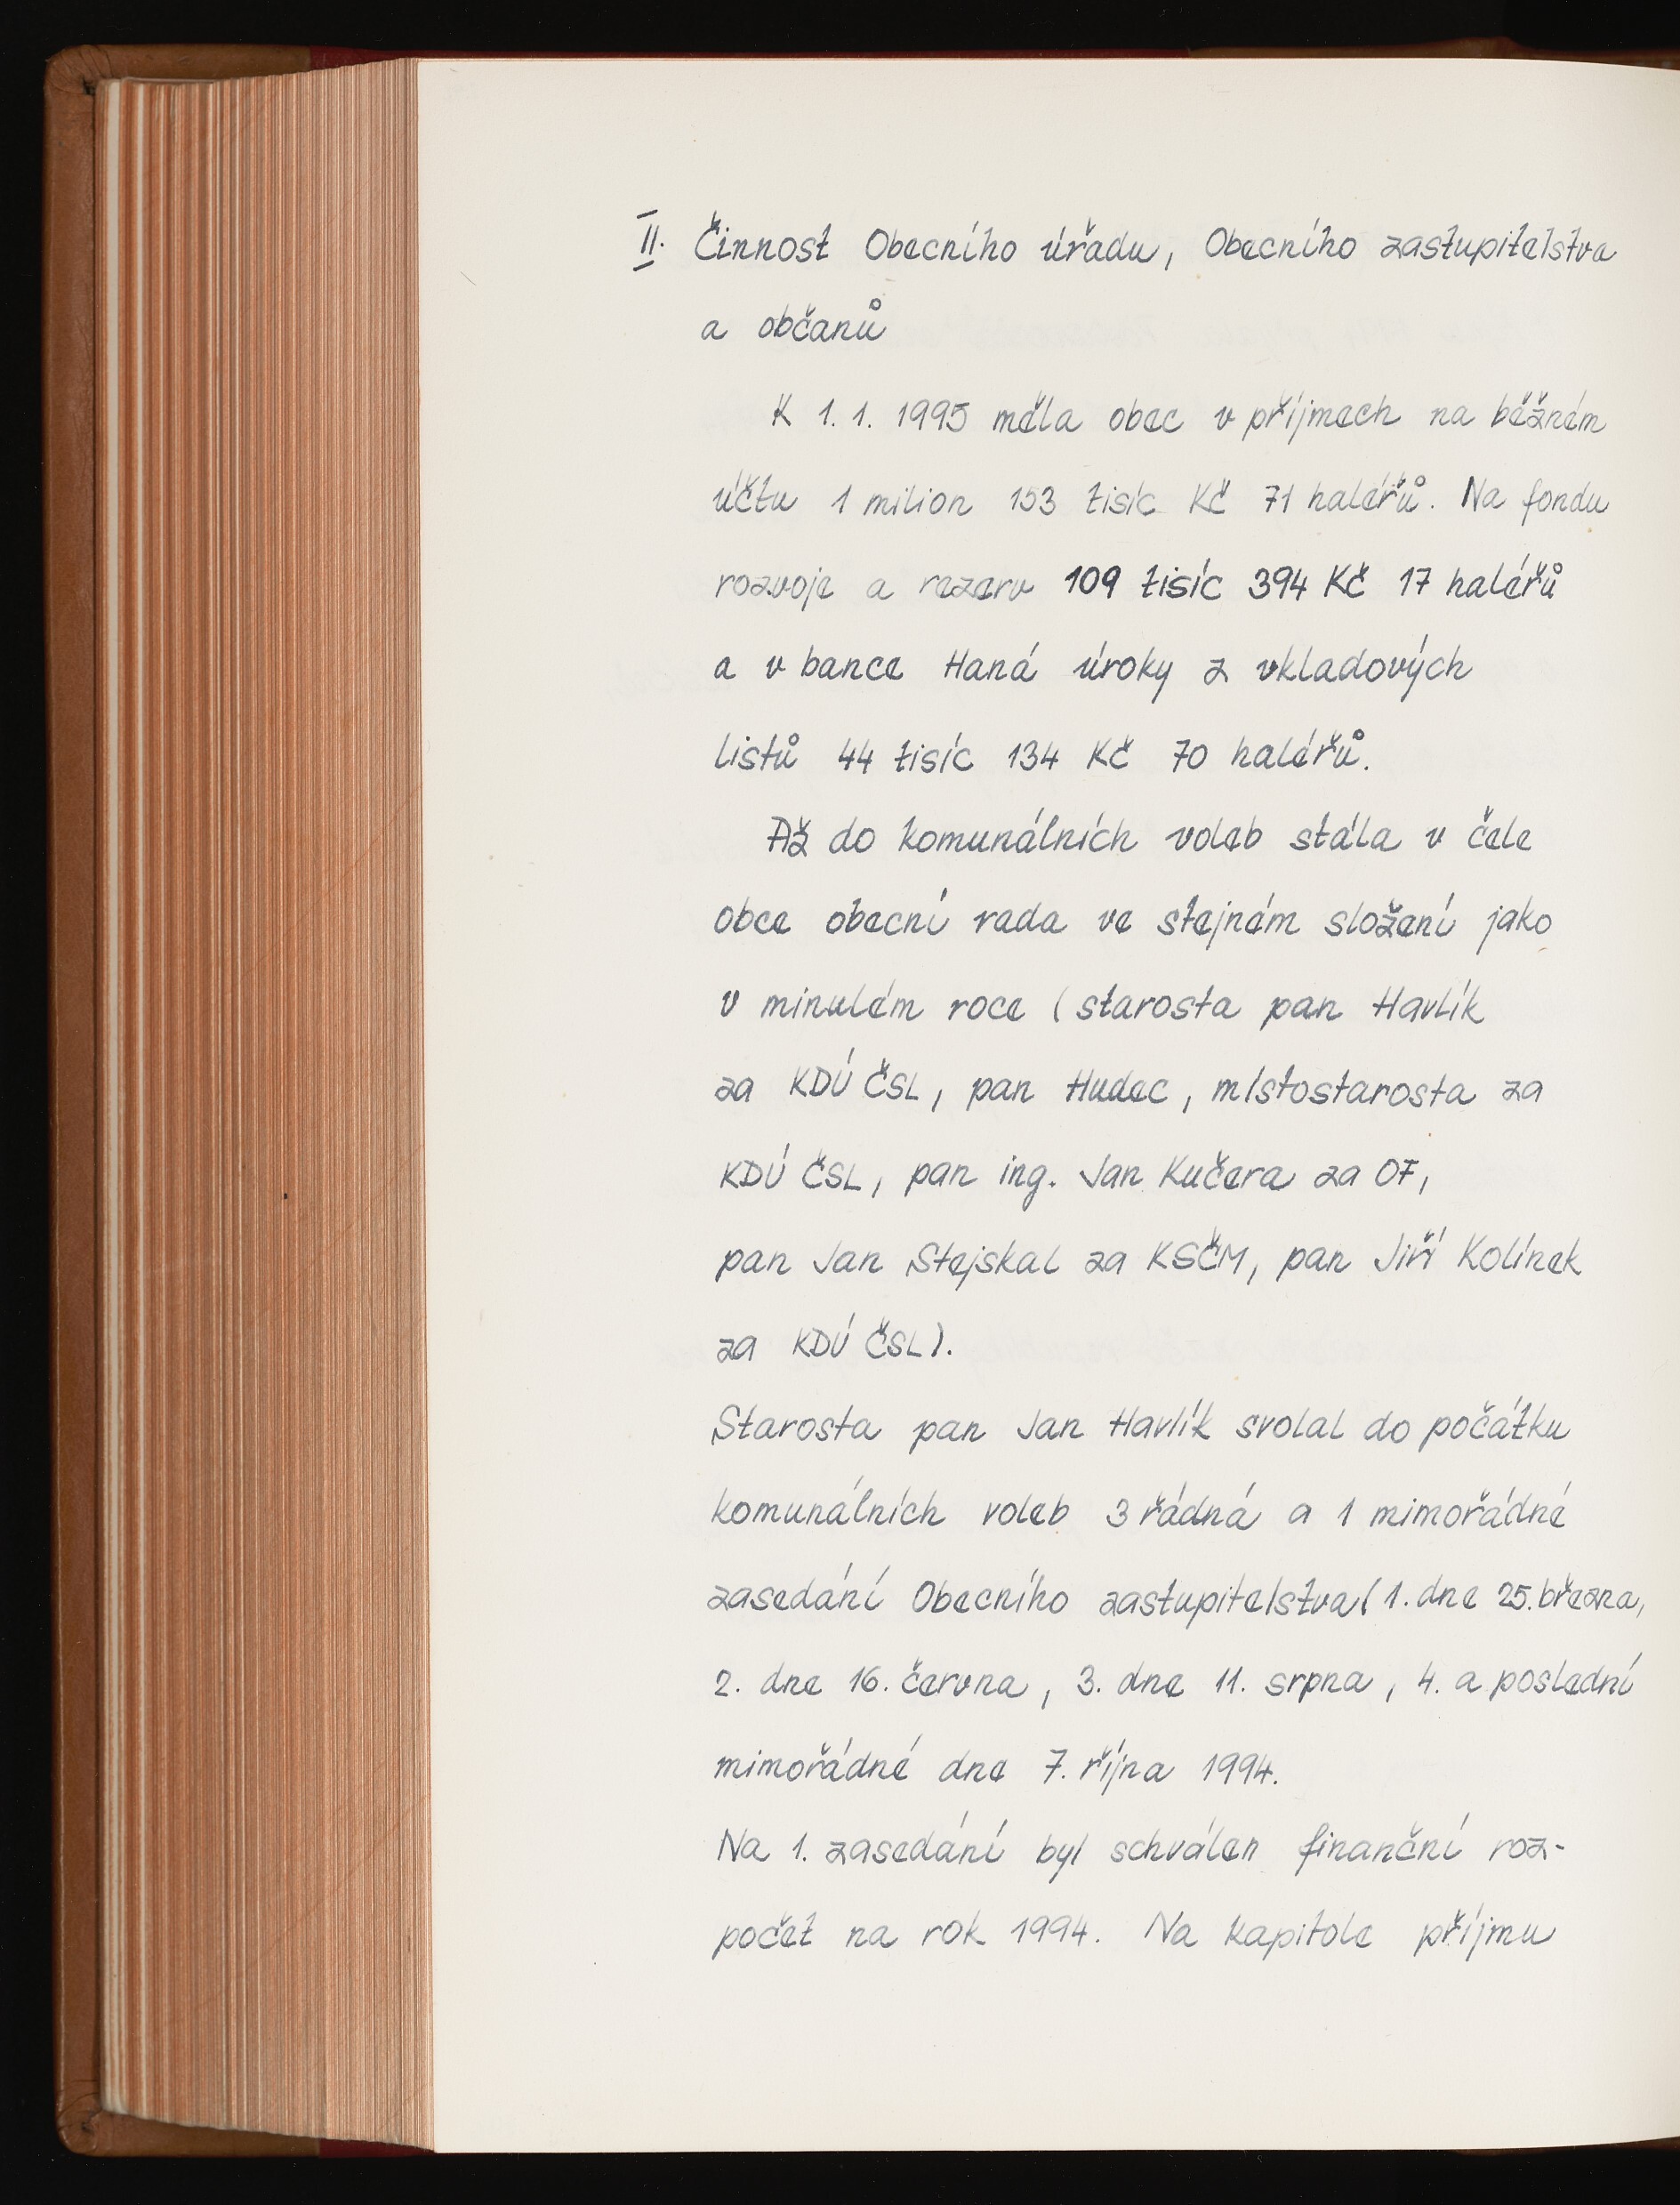 II. Činnost Obecního úřadu, Obecního zastupitelstva
a občanů
K 1. 1. 1995 měla obec v příjmech na běžném
účtu 1 milion 153 tisíc Kč 71 haléřů. Na fondu
rozvoje a rezerv 109 tisíc 394 Kč 17 haléřů
a v bance Haná úroky z vkladových
listů 44 tisíc 134 Kč 70 haléřů.
Až do komunálních voleb stála v čele
obce obecní rada ve stejném složení jako
v minulém roce (starosta pan Havlík
za KDÚ ČSL, pan Hudec, místostarosta za
KDÚ ČSL, pan ing. Jan Kučera za OF,
pan Jan Stejskal za KSČM, pan Jiří Kolínek
za KDÚ ČSL).
Starosta pan Jan Havlík svolal do počátku
komunálních voleb 3 řádná a 1 mimořádné
zasedání Obecního zastupitelstva (1. dne 25. března,
2. dne 16. června, 3. dne 11. srpna, 4. a poslední
mimořádné dne 7. října 1994.
Na 1. zasedání byl schválen finanční roz-
počet na rok 1994. Na kapitole příjmu